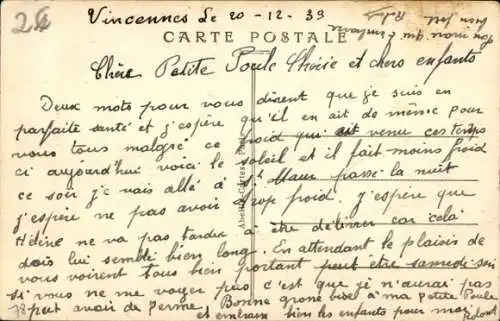 26
Vincennes Le 20-12-39
CARTE POSTALE
Chère Petite Poule Chérie et chers enfants
Deux mots pour vous dirent que je suis en
parfaite santé et j'espère qu'il en ait de même pour
vous tous malgré ce froid qui ait venu ces temps
ci aujourd'hui voici le soleil et il fait moins froid
ce soir je vais allé à St Maur passé la nuit
j'espère ne pas avoir trop froid. J'espère que
Hélène ne va pas tarder à être délivrer car cela
dois lui semblé bien long. En attendant le plaisir de
vous voirent tous bien portant peut être samedi soir
si vous ne me voyer pas c'est que je n'aurai pas
put avoir de perme. Bonne grosse bise à ma Petite Poule
et embrasse bien les enfants pour moi
Roland
78
Abeille-Cartes